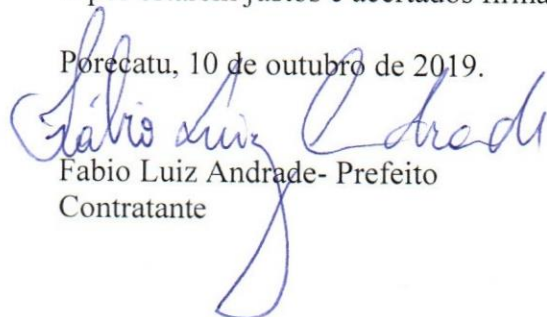 justos e acertados
Porecatu, 10 de outubro de 2019.
Fábio Luiz Andrade
Fabio Luiz Andrade- Prefeito
Contratante